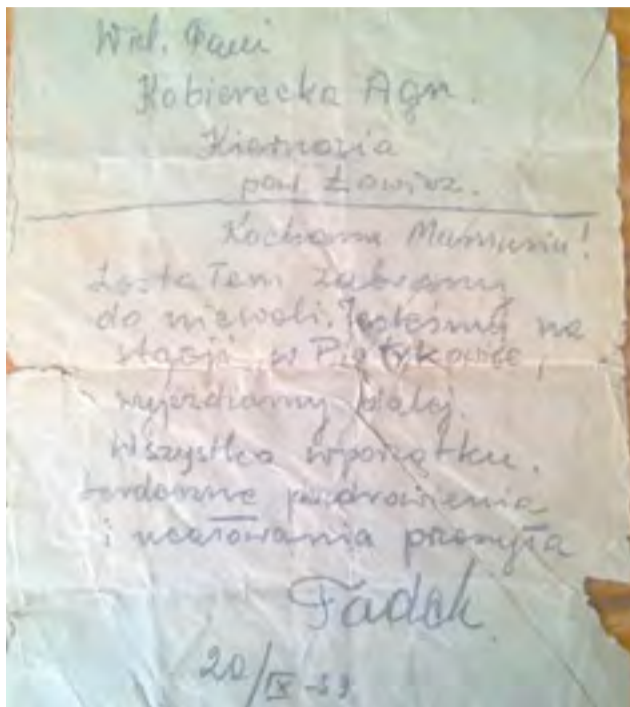 Wiel. Pani
Kobierecka Agn.
Kiernozia
pow Łowicz.
Kochana Mamusiu!
Zostałem zabrany
do niewoli. Jesteśmy na
stacji w Piątykowie,
wyjeżdżamy dalej.
Wszystko wporządku.
Serdeczne pozdrowienia
i ucałowania przesyła
Tadek
20/IX-39